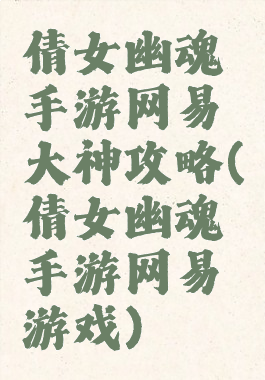 倩女幽魂
手游网易
大神攻略(
倩女幽魂
手游网易
游戏)